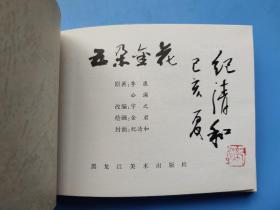 五朵金花
原著：季康
公浦
改编：宇之
绘画：金名
封面：纪清和
黑龙江美术出版社
纪清和
己亥夏